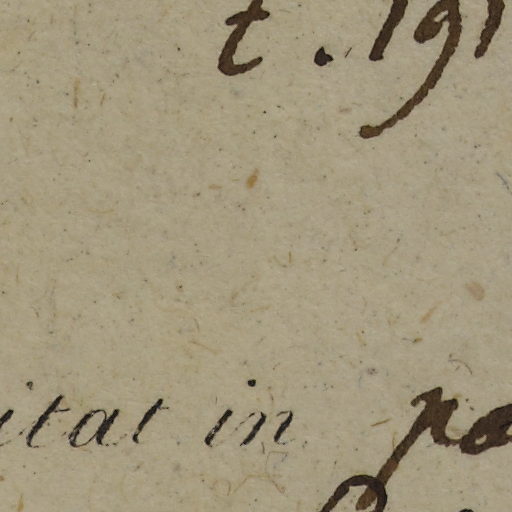 t. 191
itat in pa